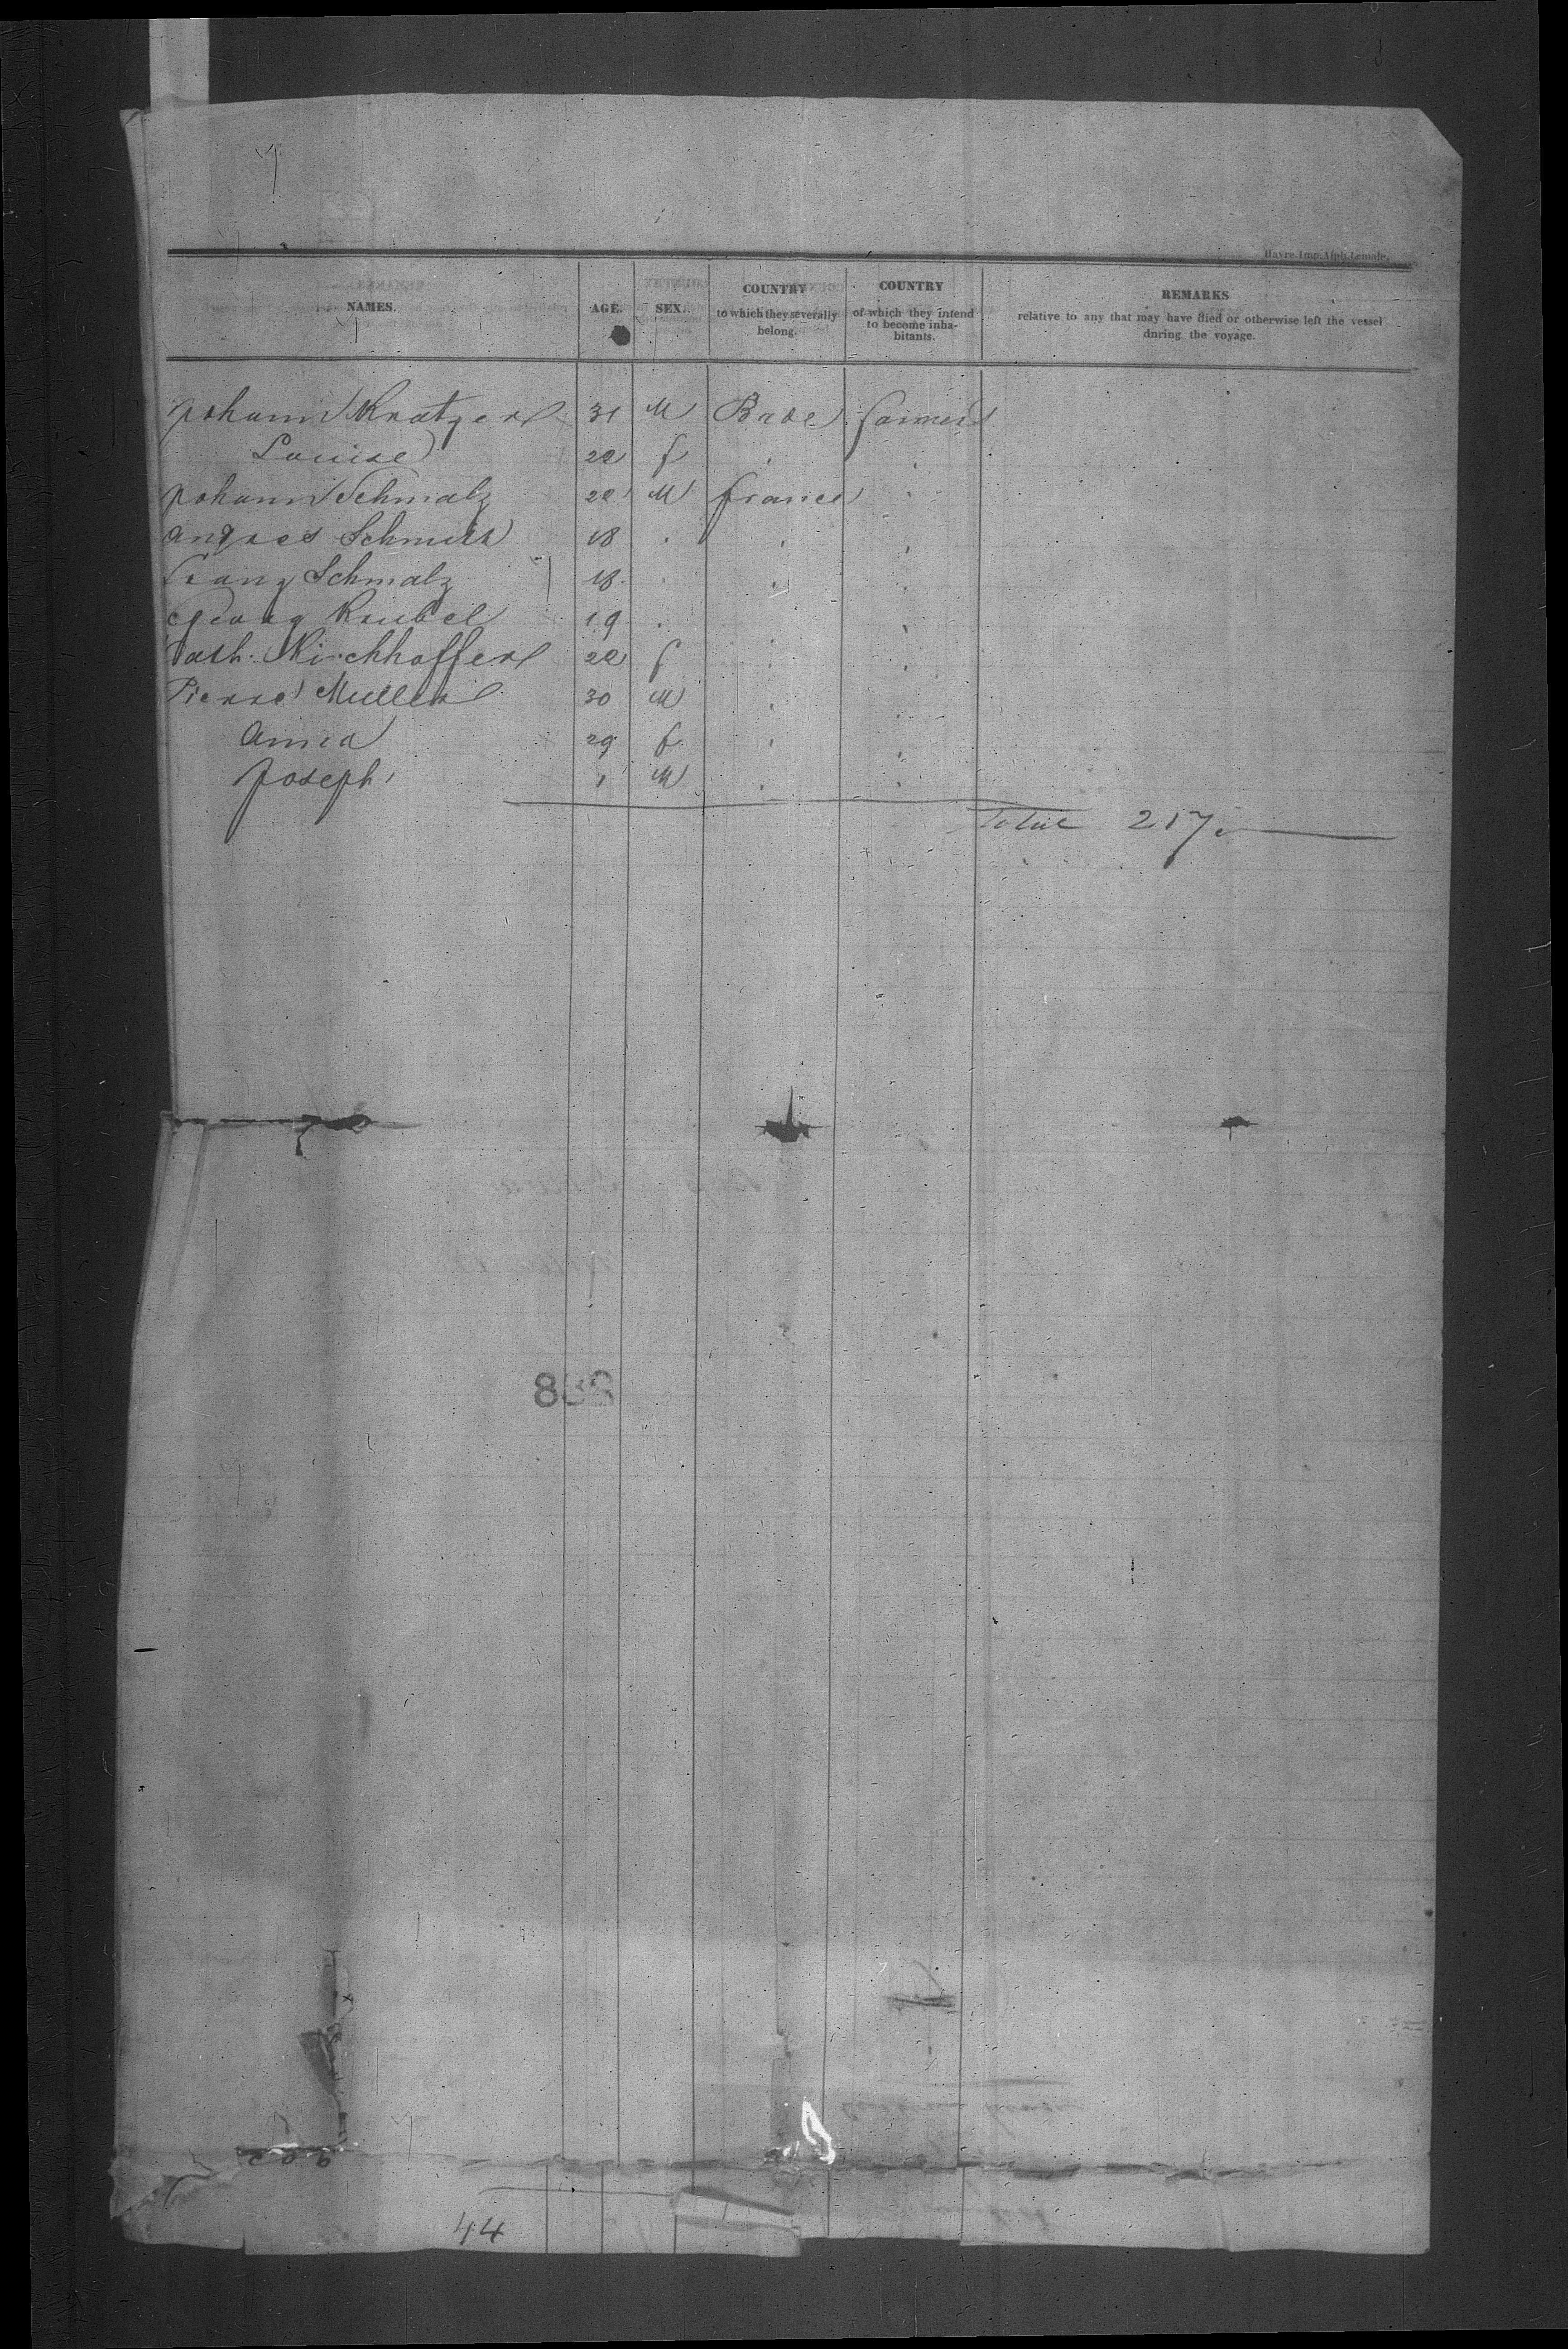 Havre. Imp. Alph. Lemale.
NAMES. AGE. SEX. COUNTRY to which they severally belong. COUNTRY of which they intend to become inhabitants. REMARKS relative to any that may have died or otherwise left the vessel during the voyage.
Johann Kratzer 31 M Bade farmer
Louise 22 f " "
Johann Schmalz 22 M france "
Schmitt 18 " " "
franz Schmalz 18 " " "
Georg 19 " " "
Cath. Kirchhoffer 22 f " "
Pierre Muller 30 M " "
Anna 29 f " "
Joseph 1 M " "
Total 217
44